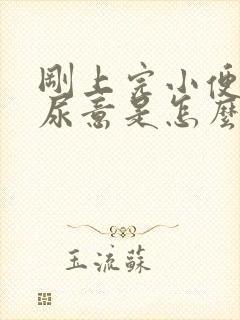 剛上完小便
尿意是怎麼
玉流蘇